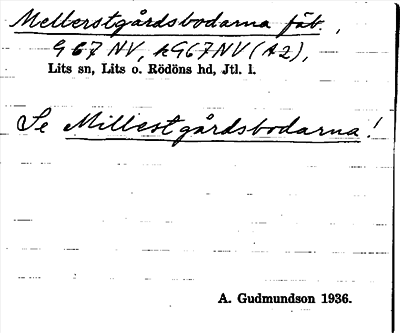 Mellerstgårdsbodarna fäb.,
G 67 NV, kG67NV(A2),
Lits sn, Lits o. Rödöns hd, Jtl. l.
Se Millestgårdsbodarna!
A. Gudmundson 1936.